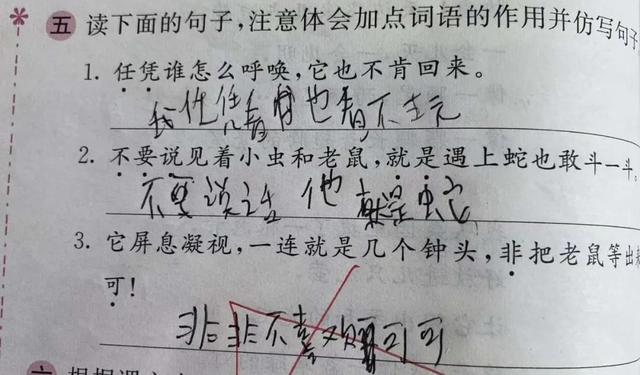 五 读下面的句子,注意体会加点词语的作用并仿写句子
1. 任凭谁怎么呼唤,它也不肯回来。
我任凭看自也看不去元
2. 不要说见着小虫和老鼠,就是遇上蛇也敢斗一斗。
不要说话 他 就是虫它
3. 它屏息凝视,一连就是几个钟头,非把老鼠等出
可!
非非不喜欢可可